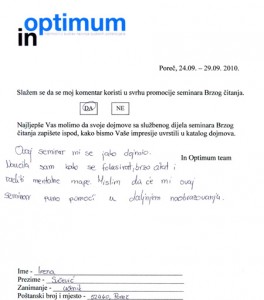 in optimum
Poreč, 24.09. – 29.09. 2010.
Slažem se da se moj komentar koristi u svrhu promocije seminara Brzog čitanja.
DA NE
Najljepše Vas molimo da svoje dojmove sa službenog dijela seminara Brzog
čitanja zapišete ispod, kako bismo Vaše impresije uvrstili u katalog dojmova.
In Optimum team
Ovaj seminar mi se jako dojmio.
Naučila sam kako se fokusirat, brzo čitat i
raditi mentalne mape. Mislim da će mi ovaj
seminar puno pomoći u daljnjem naobrazovanju.
Ime - Irena
Prezime -
Zanimanje - učenik
Poštanski broj i mjesto - 52440, Poreč